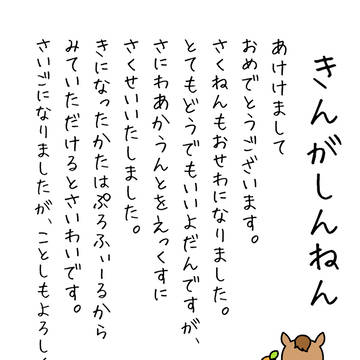 きんがしんねん
あけけまして
おめでとうございます。
さくねんもおせわになりました。
とてもどうでもいいよだんですが、
さにわあかうんとをえっくすに
さくせいいたしました。
きになったかたはぷろふぃーるから
みていただけるとさいわいです。
さいごになりましたが、ことしもよろし